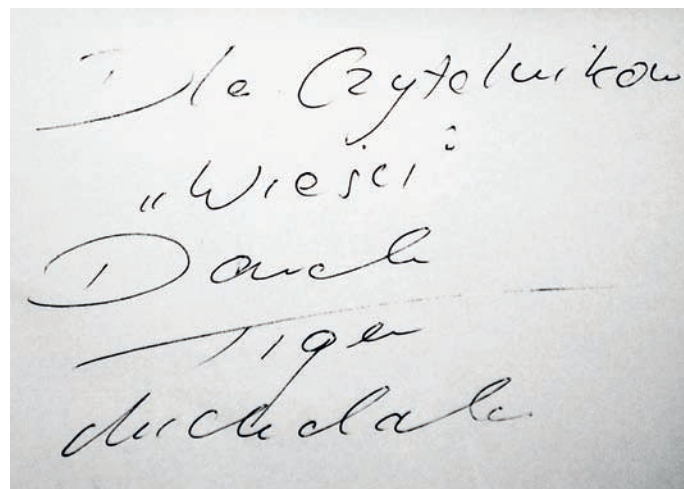 Dla Czytelników
„Wieści"
Darek
Tiger
Michalczewski